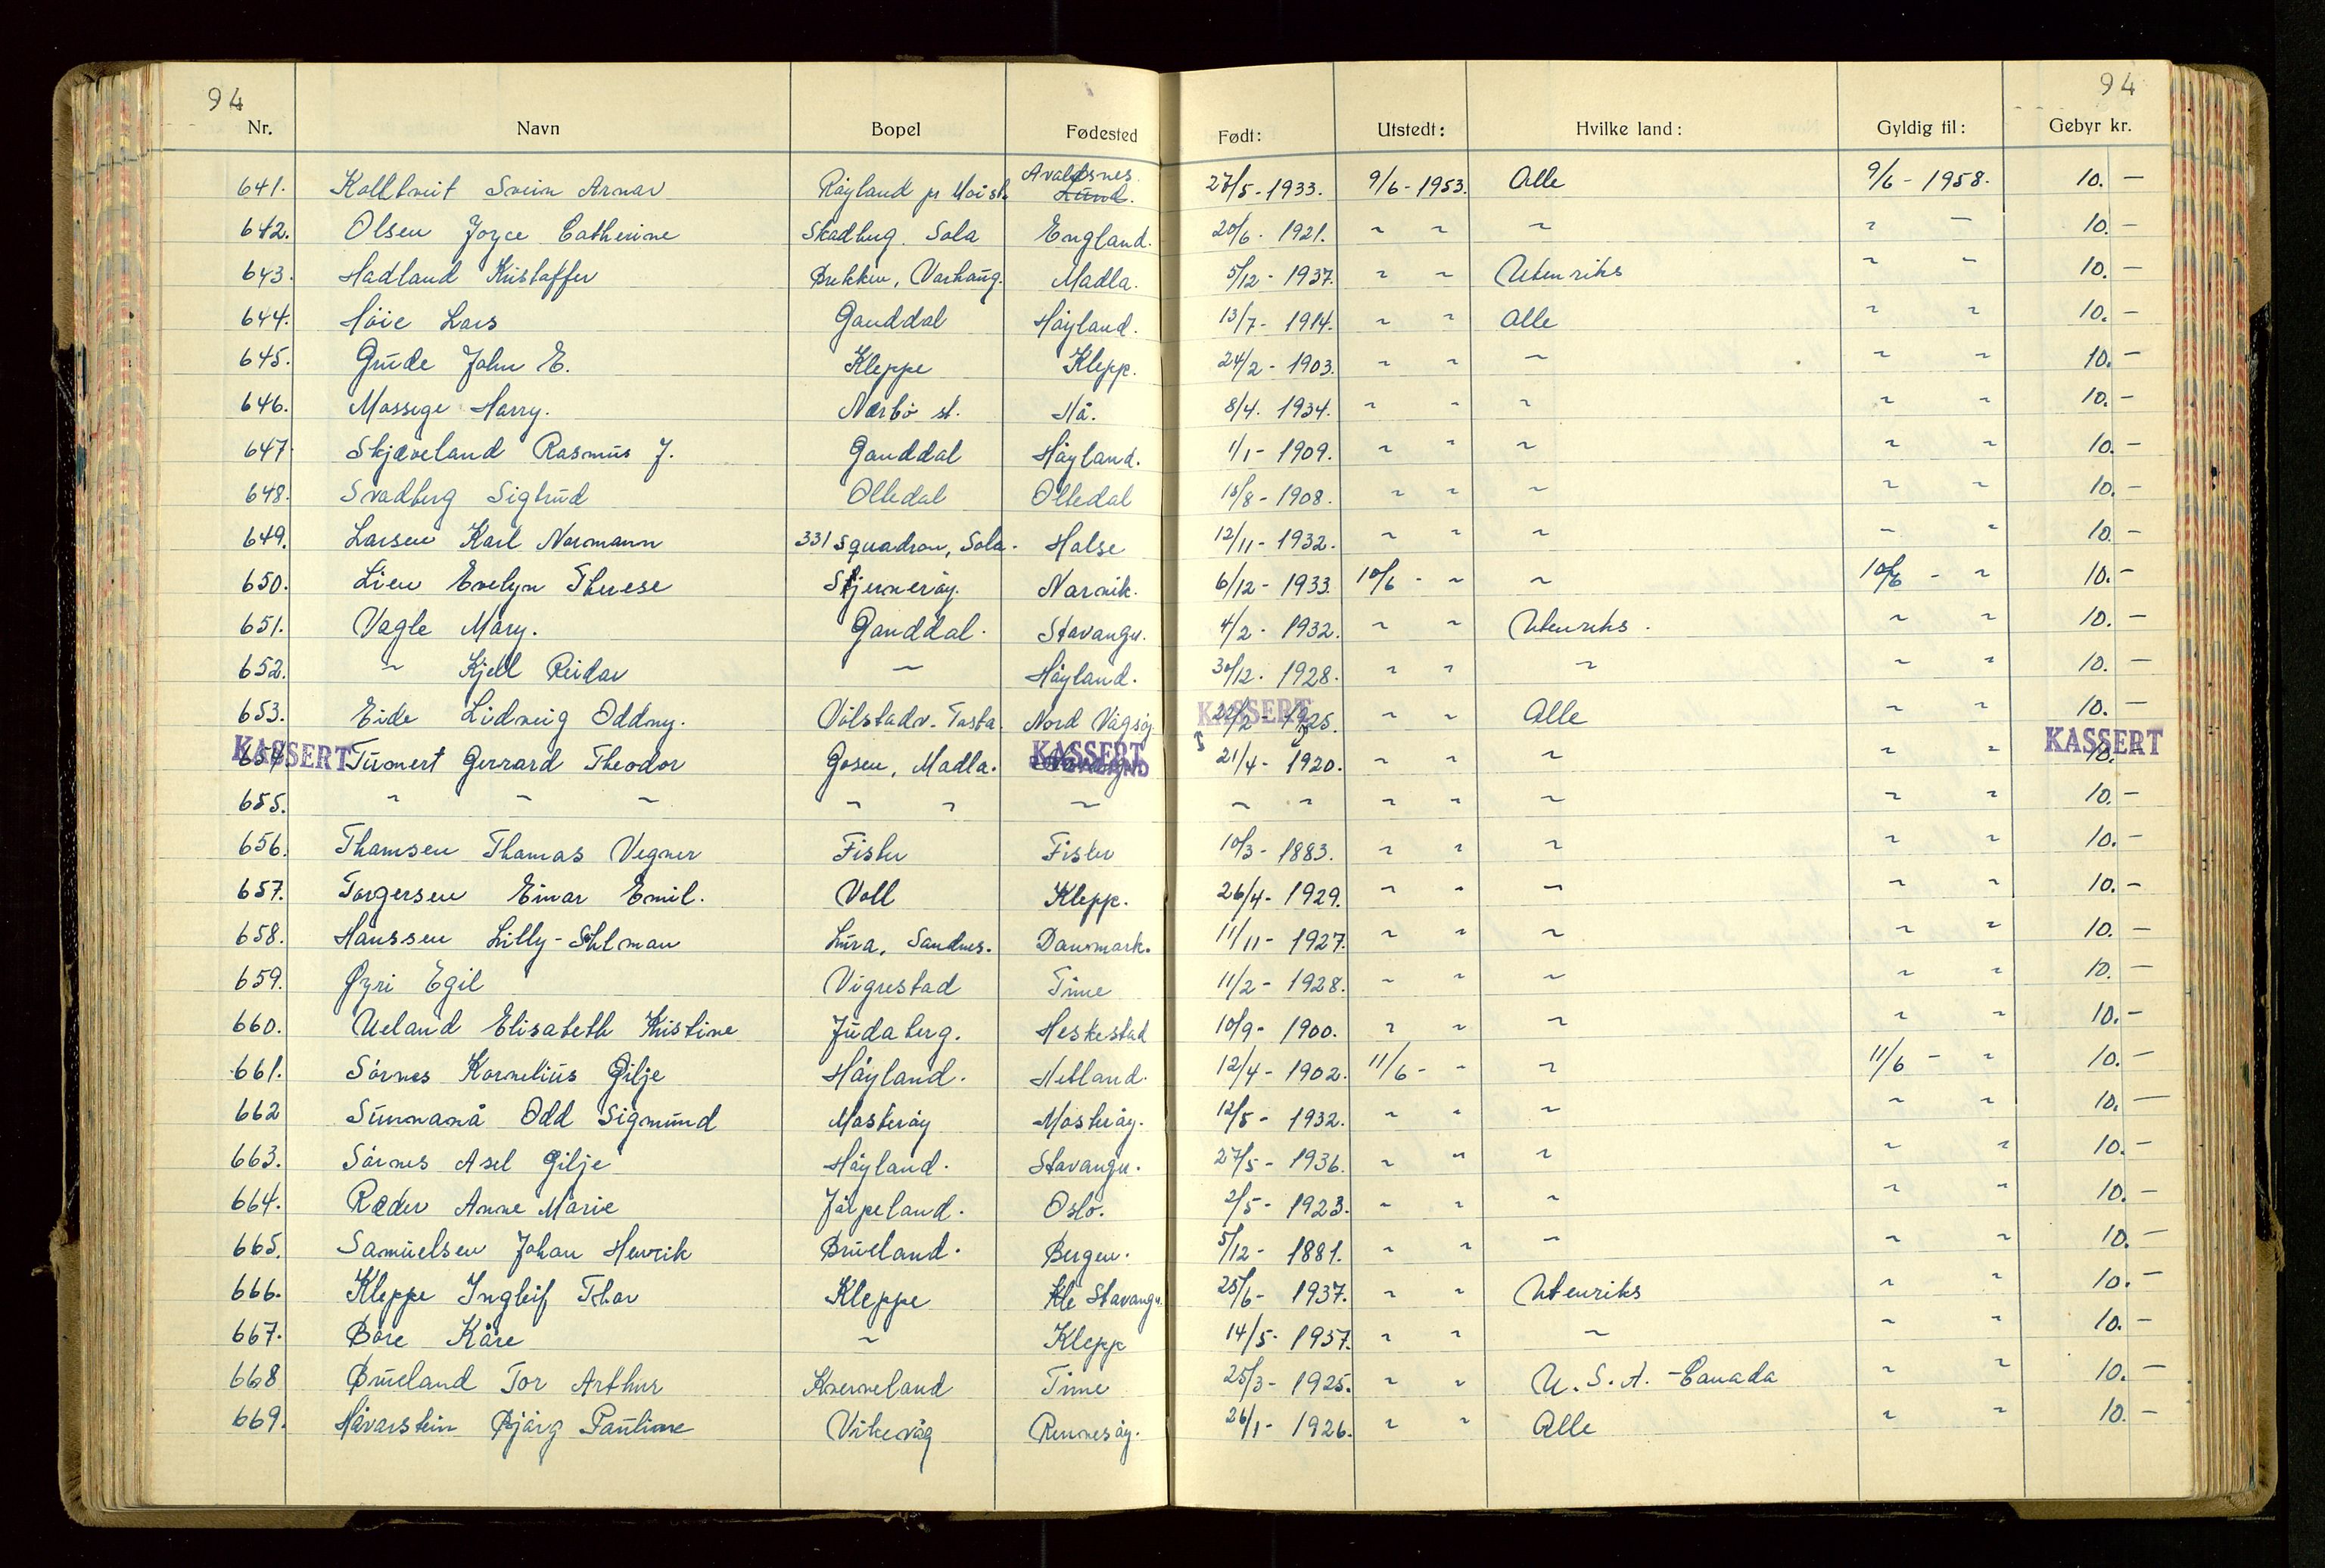 94 94
Nr. Navn Bopel Fødested Født: Utstedt: Hvilke land: Gyldig til: Gebyr kr.
Avaldsnes.
641. Kalltveit Svein Arnar Røyland pr Moi st. Lund. 27/5-1933. 9/6-1953. Alle 9/6-1958. 10.-
642. Olsen Joyce Catherine Skadberg. Sola England. 20/6. 1921. " " " " - 10.-
643. Hadland Kristoffer Brekken, Varhaug. Madla. 5/12-1937. " " Utenriks " " 10.-
644. Høie Lars Ganddal Høyland. 13/7-1914. " " Alle " " 10.-
645. Grude John E. Kleppe Klepp. 24/2-1903. " " " " " 10.-
646. Mossige Harry. Nærbø st. Hå. 8/4. 1934. " " " " " 10.-
647 Skjæveland Rasmus J. Ganddal Høyland. 1/1-1909. " " " " " 10.-
648. Svadberg Sigtrud Oltedal Oltedal 18/8-1908. " " " " " 10.-
649. Larsen Karl Normann 331 Squadron, Sola. Halse 12/11-1932. " " " " " 10.-
650. Lien Evelyn Therese Stjernerøy. Narvik. 6/12-1933. 10/6 - " " 10/6 - " 10.-
651. Vagle Mary. Ganddal. Stavanger. 4/2-1932. " " Utenriks. " " 10.-
652. " Kjell Reidar " Høyland. 30/12. 1928. " " " " " 10.-
653. Eide Lidveig Oddny. Vålstadv. Tasta. Nord Vågsøy KASSERT 22/2-1925. " " Alle " " 10.-
654. KASSERT Tümert Gerrard Theodor Gosen, Madla. KASSERT 21/4-1920. " " " " " KASSERT 10.-
655. " " " " " " " " " " " " " 10.-
656. Thomsen Thomas Vegner Fister Fister 10/3-1883. " " " " " 10.-
657. Torgersen Einar Emil. Voll Klepp. 26/4-1929. " " " " " 10.-
658. Hanssen Lilly-Sihlman Lura, Sandnes. Danmark. 11/11-1927. " " " " " 10.-
659. Øyri Egil Vigrestad Time 11/2-1928. " " " " " 10.-
660. Ueland Elisabeth Kristine Judaberg. Heskestad 10/9-1900. " " " " " 10.-
661. Sørnes Kornelius Gilje Høyland. Hetland. 12/4-1902. 11/6 - " " 11/6 - " 10.-
662 Sunnanå Odd Sigmund Mosterøy Mosterøy. 12/5-1932. " " " " " 10.-
663. Sørnes Asel Gilje Høyland. Stavanger. 27/5-1936. " " " " " 10.-
664. Ræder Anne Marie Jørpeland. Oslo. 2/5-1923. " " " " " 10.-
665. Samuelsen Johan Henrik Brueland. Bergen. 5/12-1881. " " " " " 10.-
666. Kleppe Ingleif Thor Kleppe Kle Stavanger. 25/6-1937. " " Utenriks " " 10.-
667. Bore Kåre " Klepp 14/5-1937. " " " " " 10.-
668 Brueland Tor Arthur Kverneland Time 25/3-1925. " " U.S.A.-Canada " " 10.-
669. Håvarstein Bjørg Pauline Vikevåg Rennesøy. 26/1-1926. " " Alle " " 10.-